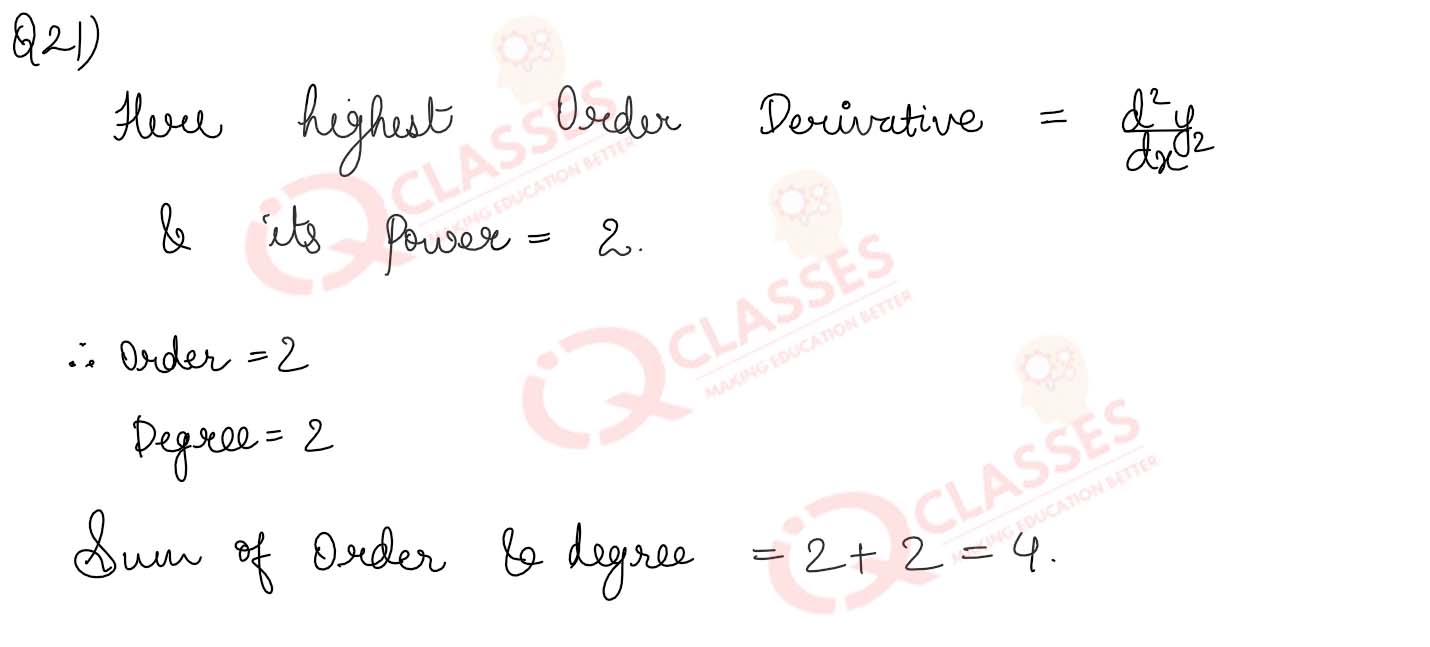 Q21)
Here highest Order Derivative = d²y/dx²
& its Power = 2.
∴ Order = 2
Degree = 2
Sum of Order & degree = 2 + 2 = 4.
iQ CLASSES
MAKING EDUCATION BETTER
iQ CLASSES
MAKING EDUCATION BETTER
iQ CLASSES
MAKING EDUCATION BETTER